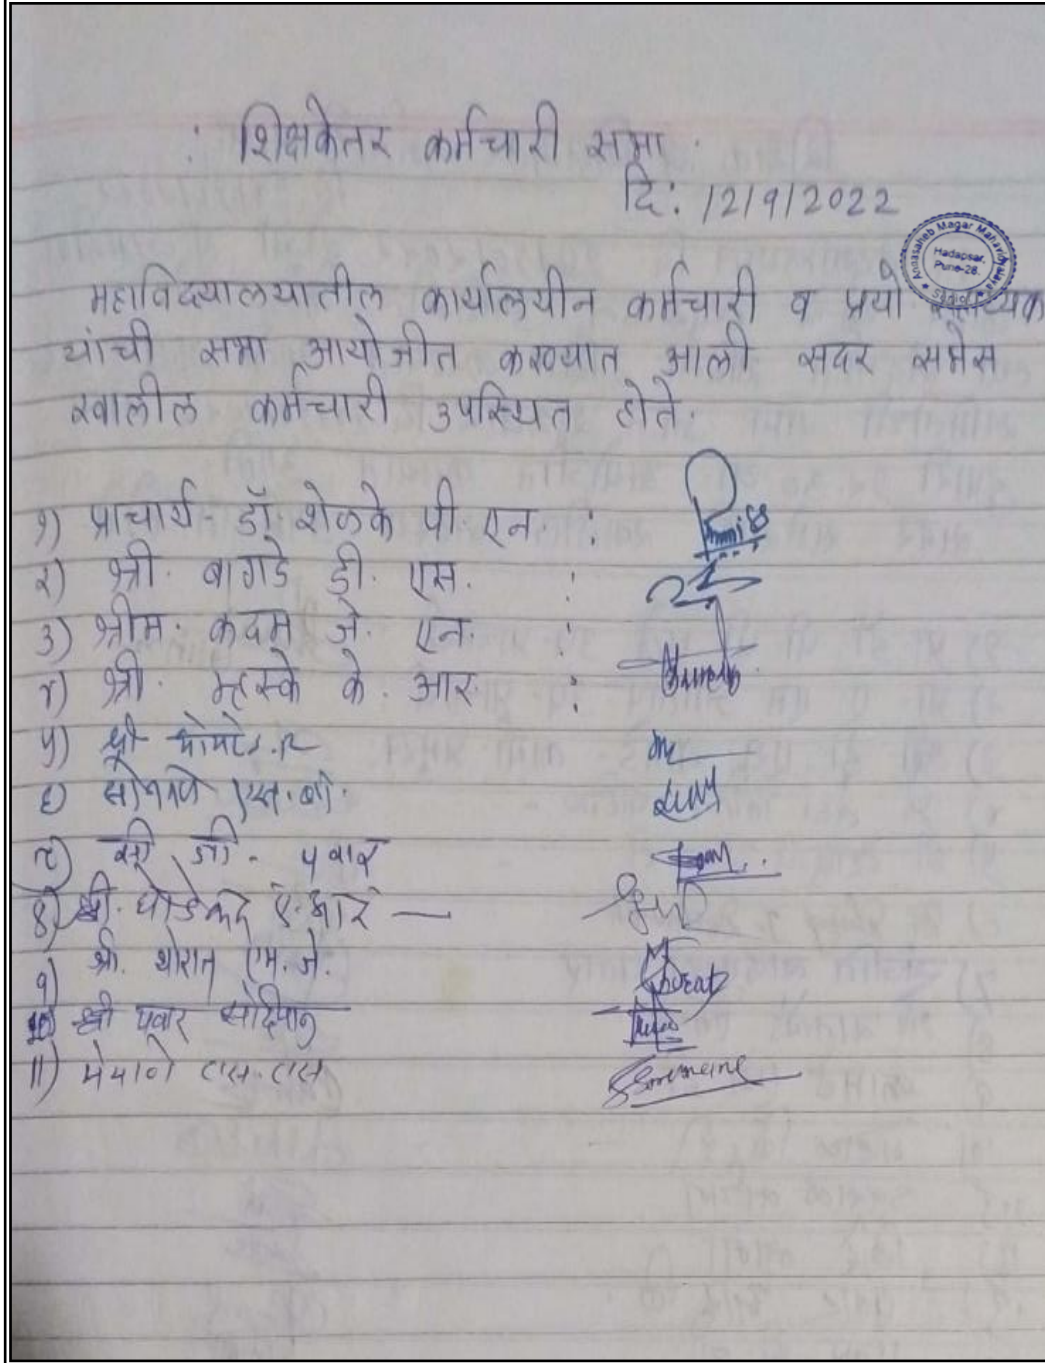 : शिक्षकेतर कर्मचारी सभा .
दि: 12/9/2022
Annasaheb Magar Mahavidyalaya
Hadapsar,
Pune-28.
महाविद्यालयातील कार्यालयीन कर्मचारी व प्रयो
यांची सभा आयोजीत करण्यात आली सदर सभेस
खालील कर्मचारी उपस्थित होते.
१) प्राचार्य डॉ. शेळके पी. एन. :
२) श्री. बागडे डी. एस. :
३) श्रीम. कदम जे. एन. :
४) श्री. म्हस्के के. आर. :
५) श्री
६) सोनवणे एस. बी.
जी. पवार
8) श्री. घोडेकर ए. आर —
९) श्री. थोरात एम. जे.
Thorat
10) श्री पवार
11) एस. एस